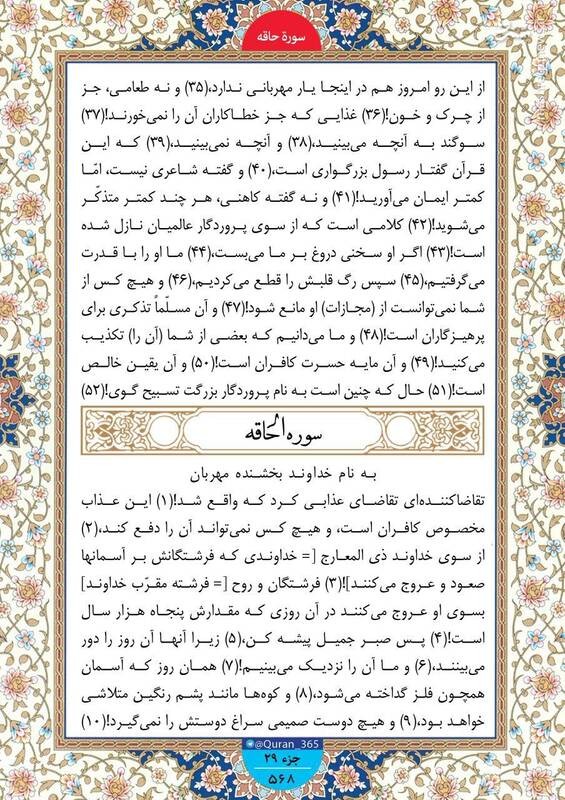 سورة حاقه
از این رو امروز هم در اینجا یار مهربانی ندارد،(۳۵) و نه طعامی، جز
از چرک و خون!(۳۶) غذایی که جز خطاکاران آن را نمی‌خورند!(۳۷)
سوگند به آنچه می‌بینید،(۳۸) و آنچه نمی‌بینید،(۳۹) که این
قرآن گفتار رسول بزرگواری است،(۴۰) و گفته شاعری نیست، امّا
کمتر ایمان می‌آورید!(۴۱) و نه گفته کاهنی، هر چند کمتر متذکّر
می‌شوید!(۴۲) کلامی است که از سوی پروردگار عالمیان نازل شده
است!(۴۳) اگر او سخنی دروغ بر ما می‌بست،(۴۴) ما او را با قدرت
می‌گرفتیم،(۴۵) سپس رگ قلبش را قطع می‌کردیم،(۴۶) و هیچ کس از
شما نمی‌توانست از (مجازات) او مانع شود!(۴۷) و آن مسلّماً تذکری برای
پرهیزگاران است!(۴۸) و ما می‌دانیم که بعضی از شما (آن را) تکذیب
می‌کنید!(۴۹) و آن مایه حسرت کافران است!(۵۰) و آن یقین خالص
است!(۵۱) حال که چنین است به نام پروردگار بزرگت تسبیح گوی!(۵۲)
سوره الحاقه
به نام خداوند بخشنده مهربان
تقاضاکننده‌ای تقاضای عذابی کرد که واقع شد!(۱) این عذاب
مخصوص کافران است، و هیچ کس نمی‌تواند آن را دفع کند،(۲)
از سوی خداوند ذی المعارج [= خداوندی که فرشتگانش بر آسمانها
صعود و عروج می‌کنند]!(۳) فرشتگان و روح [= فرشته مقرّب خداوند]
بسوی او عروج می‌کنند در آن روزی که مقدارش پنجاه هزار سال
است!(۴) پس صبر جمیل پیشه کن،(۵) زیرا آنها آن روز را دور
می‌بینند،(۶) و ما آن را نزدیک می‌بینیم!(۷) همان روز که آسمان
همچون فلز گداخته می‌شود،(۸) و کوه‌ها مانند پشم رنگین متلاشی
خواهد بود،(۹) و هیچ دوست صمیمی سراغ دوستش را نمی‌گیرد!(۱۰)
@Quran_365
جزء ۲۹
۵۶۸